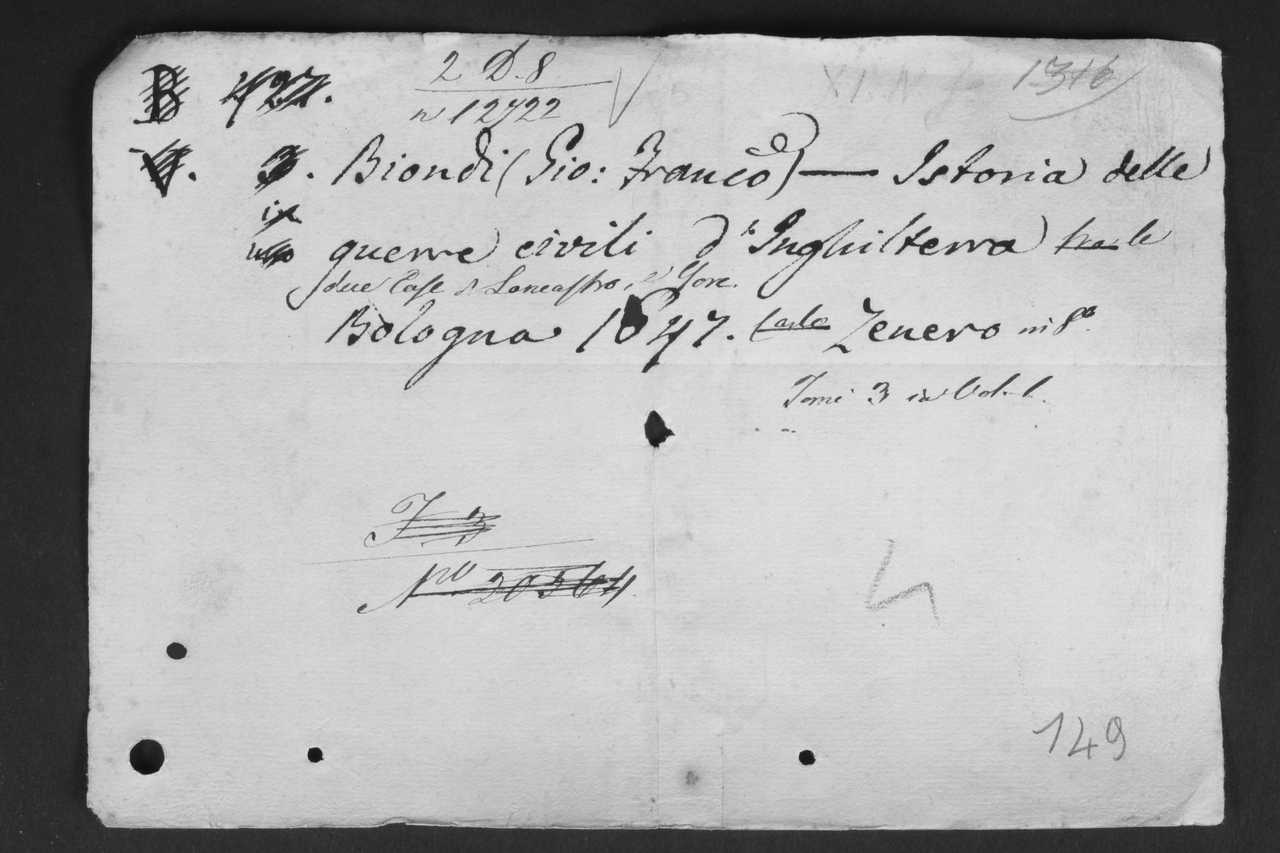 2 D. 8
n 12722
1316
B 427.
V. 3. Biondi (Gio: Franco) — Istoria delle
in
uno
guerre civili d'Inghilterra tra le
due Case di Lancastro, e Jorc.
Bologna 1647. Zenero in 8º
Tomi 3 in Vol. 1.
F 3
Nro 20564
149